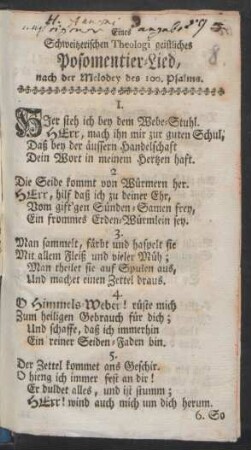 Eines
Schweitzerischen Theologi geistliches
Posomentier-Lied,
nach der Melodey des 100. Psalms.
8.
1.
HIer steh ich bey dem Webe-Stuhl.
HErr, mach ihn mir zur guten Schul,
Daß bey der äussern Handelschaft
Dein Wort in meinem Hertzen haft.
2
Die Seide kommt von Würmern her.
HErr, hilf daß ich zu deiner Ehr,
Vom gift'gen Sünden-Samen frey,
Ein frommes Erden-Würmlein sey.
3.
Man sammelt, färbt und haspelt sie
Mit allem Fleiß und vieler Müh;
Man theilet sie auf Spulen aus,
Und machet einen Zettel draus.
4.
O Himmels-Weber! rüste mich
Zum heiligen Gebrauch für dich;
Und schaffe, daß ich immerhin
Ein reiner Seiden-Faden bin.
5.
Der Zettel kommet ans Geschir.
O hieng ich immer fest an dir!
Er duldet alles, und ist stumm;
HErr! wird auch mich um dich herum.
6. So